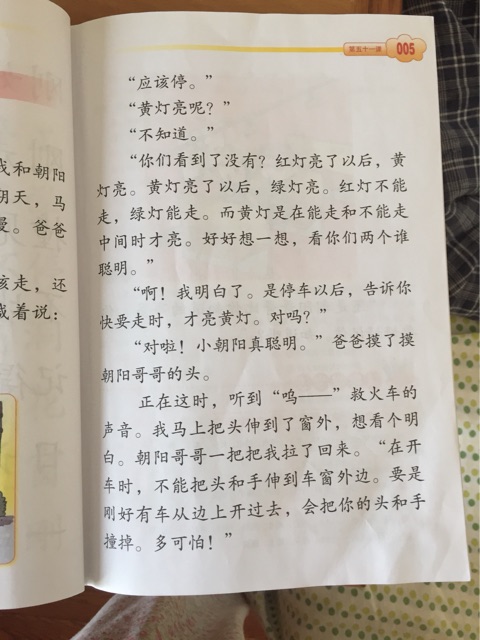 第五十一课 005
“应该停。”
“黄灯亮呢？”
“不知道。”
“你们看到了没有？红灯亮了以后，黄
灯亮。黄灯亮了以后，绿灯亮。红灯不能
走，绿灯能走。而黄灯是在能走和不能走
中间时才亮。好好想一想，看你们两个谁
聪明。”
“啊！我明白了。是停车以后，告诉你
快要走时，才亮黄灯。对吗？”
“对啦！小朝阳真聪明。”爸爸摸了摸
朝阳哥哥的头。
正在这时，听到“呜——”救火车的
声音。我马上把头伸到了窗外，想看个明
白。朝阳哥哥一把把我拉了回来。“在开
车时，不能把头和手伸到车窗外边。要是
刚好有车从边上开过去，会把你的头和手
撞掉。多可怕！”
我和朝阳
阴天，马
爸爸
该走，还
着说：